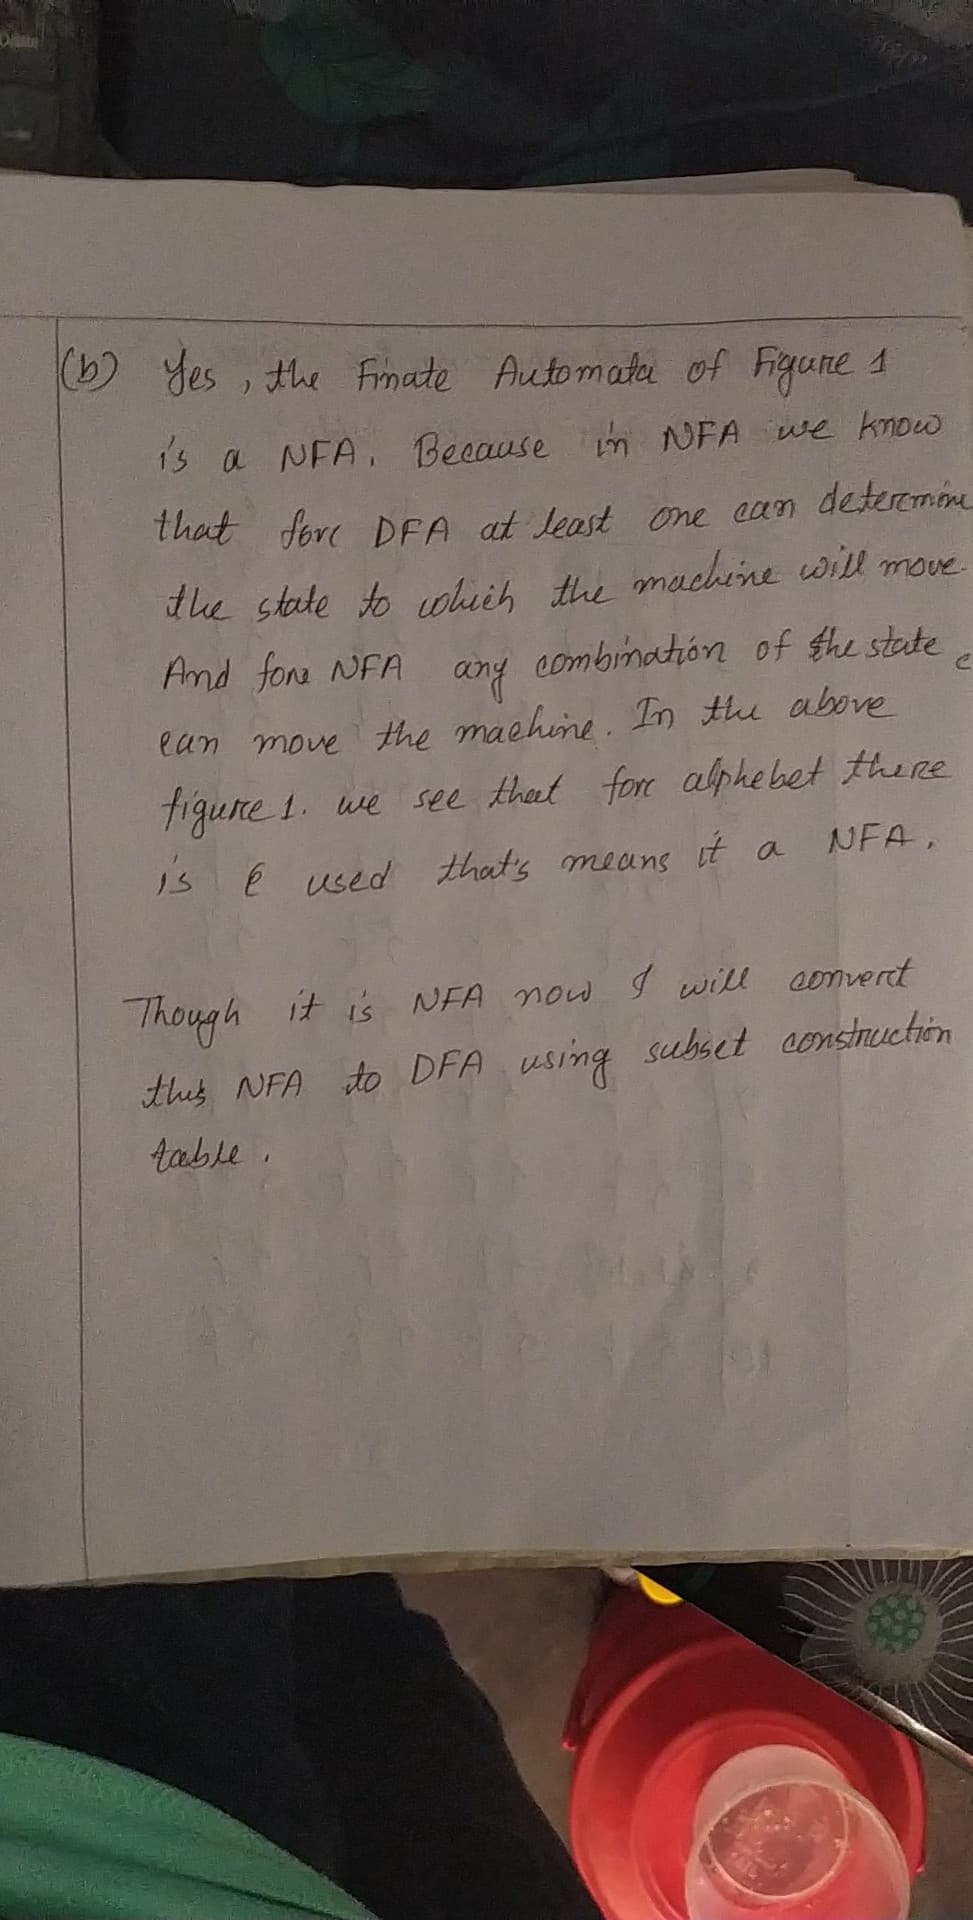 (b) Yes, the Finate Automata of Figure 1
is a NFA. Because in NFA we know
that for DFA at least one can determine
the state to which the machine will move.
And for NFA any combination of the state
can move the machine. In the above
figure 1. we see that for alphebet there
is ϵ used that's means it a NFA.
Though it is NFA now I will convert
this NFA to DFA using subset construction
table.